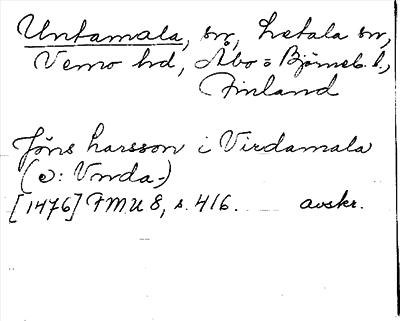 Untamala, sn, Letala sn,
Vemo hd, Åbo=Björneb. l.,
Finland
Jöns Larsson i Virdamala
(ɔ: Vnda-)
[1476] FMU 8, s. 416. avskr.